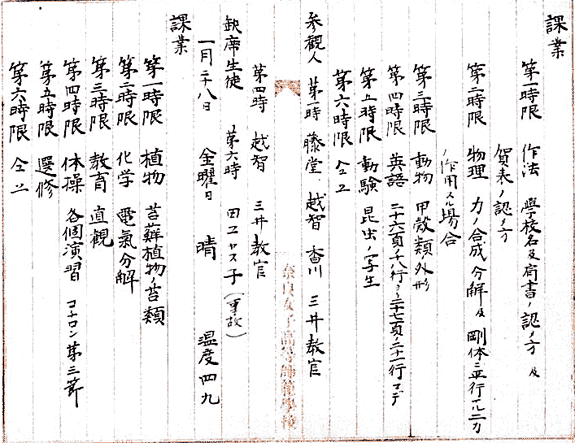 課業
第一時限 作法 學校名及肩書ノ認メ方 及
賀表ノ認メ方
第二時限 物理 力ノ合成分解及 剛体ニ平行ナル二力
ノ作用スル場合
第三時限 動物 甲殻類外形
第四時限 英語 二十六頁ノ八行ヨリ二十七頁ノ二十一行マデ
第五時限 動驗 昆虫ノ寫生
第六時限 仝上
参觀人 第一時 藤堂 越智 香川 三井教官
第四時 越智 三井教官
缺席生徒 第六時 田ヱヤス子(事故)
一月二十八日 金曜日 晴 温度四九
課業
第一時限 植物 苔蘚植物ノ苔類
第二時限 化学 電氣分解
第三時限 教育 直觀
第四時限 体操 各個演習 コチロン第三節
第五時限 選修
第六時限 仝上
奈良女子高等師範學校